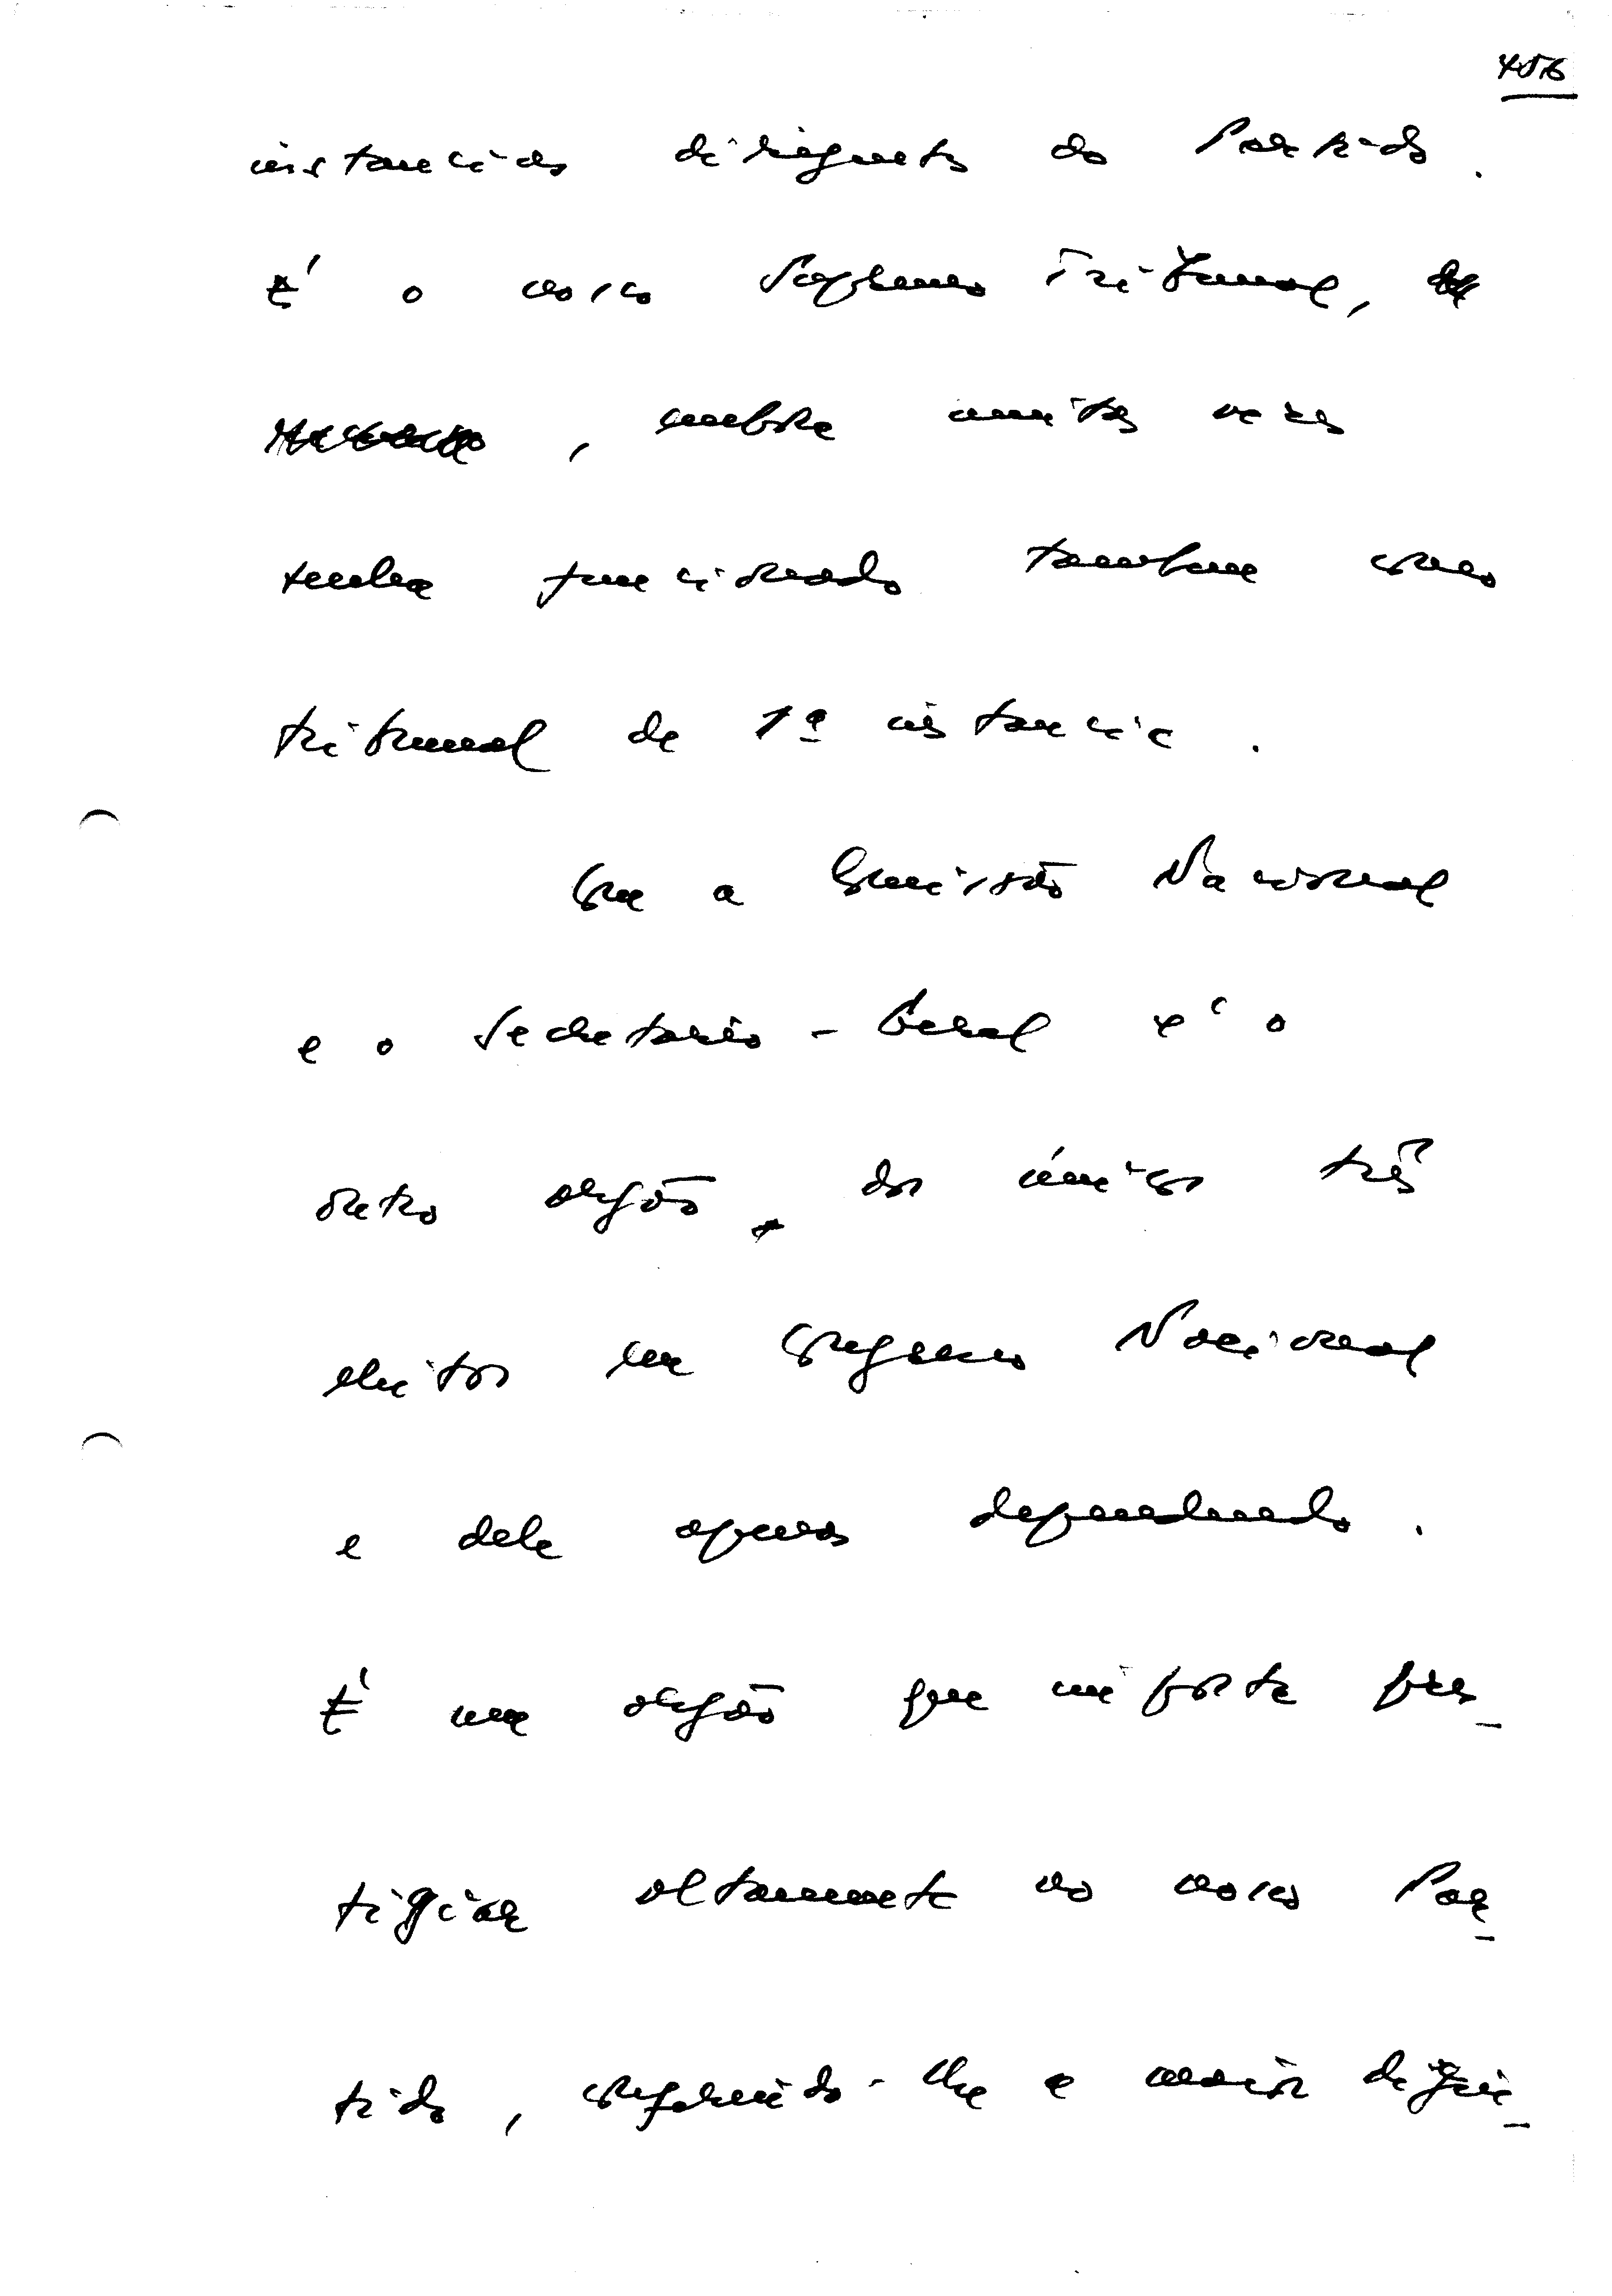 instancias dirigentes do Partido.
É o nosso Supremo Tribunal,
, embora muitas vezes
tenha funcionado tambem como
tribunal de 1ª instancia.
Com a Comissão Nacional
e o Secretario-Geral é o
outro orgão, dos únicos três
eleitos em Congresso Nacional
e dele apenas dependendo.
É um orgão que importa pres-
tigiar altamente no nosso Par-
tido, conferindo-lhe a maior digni-